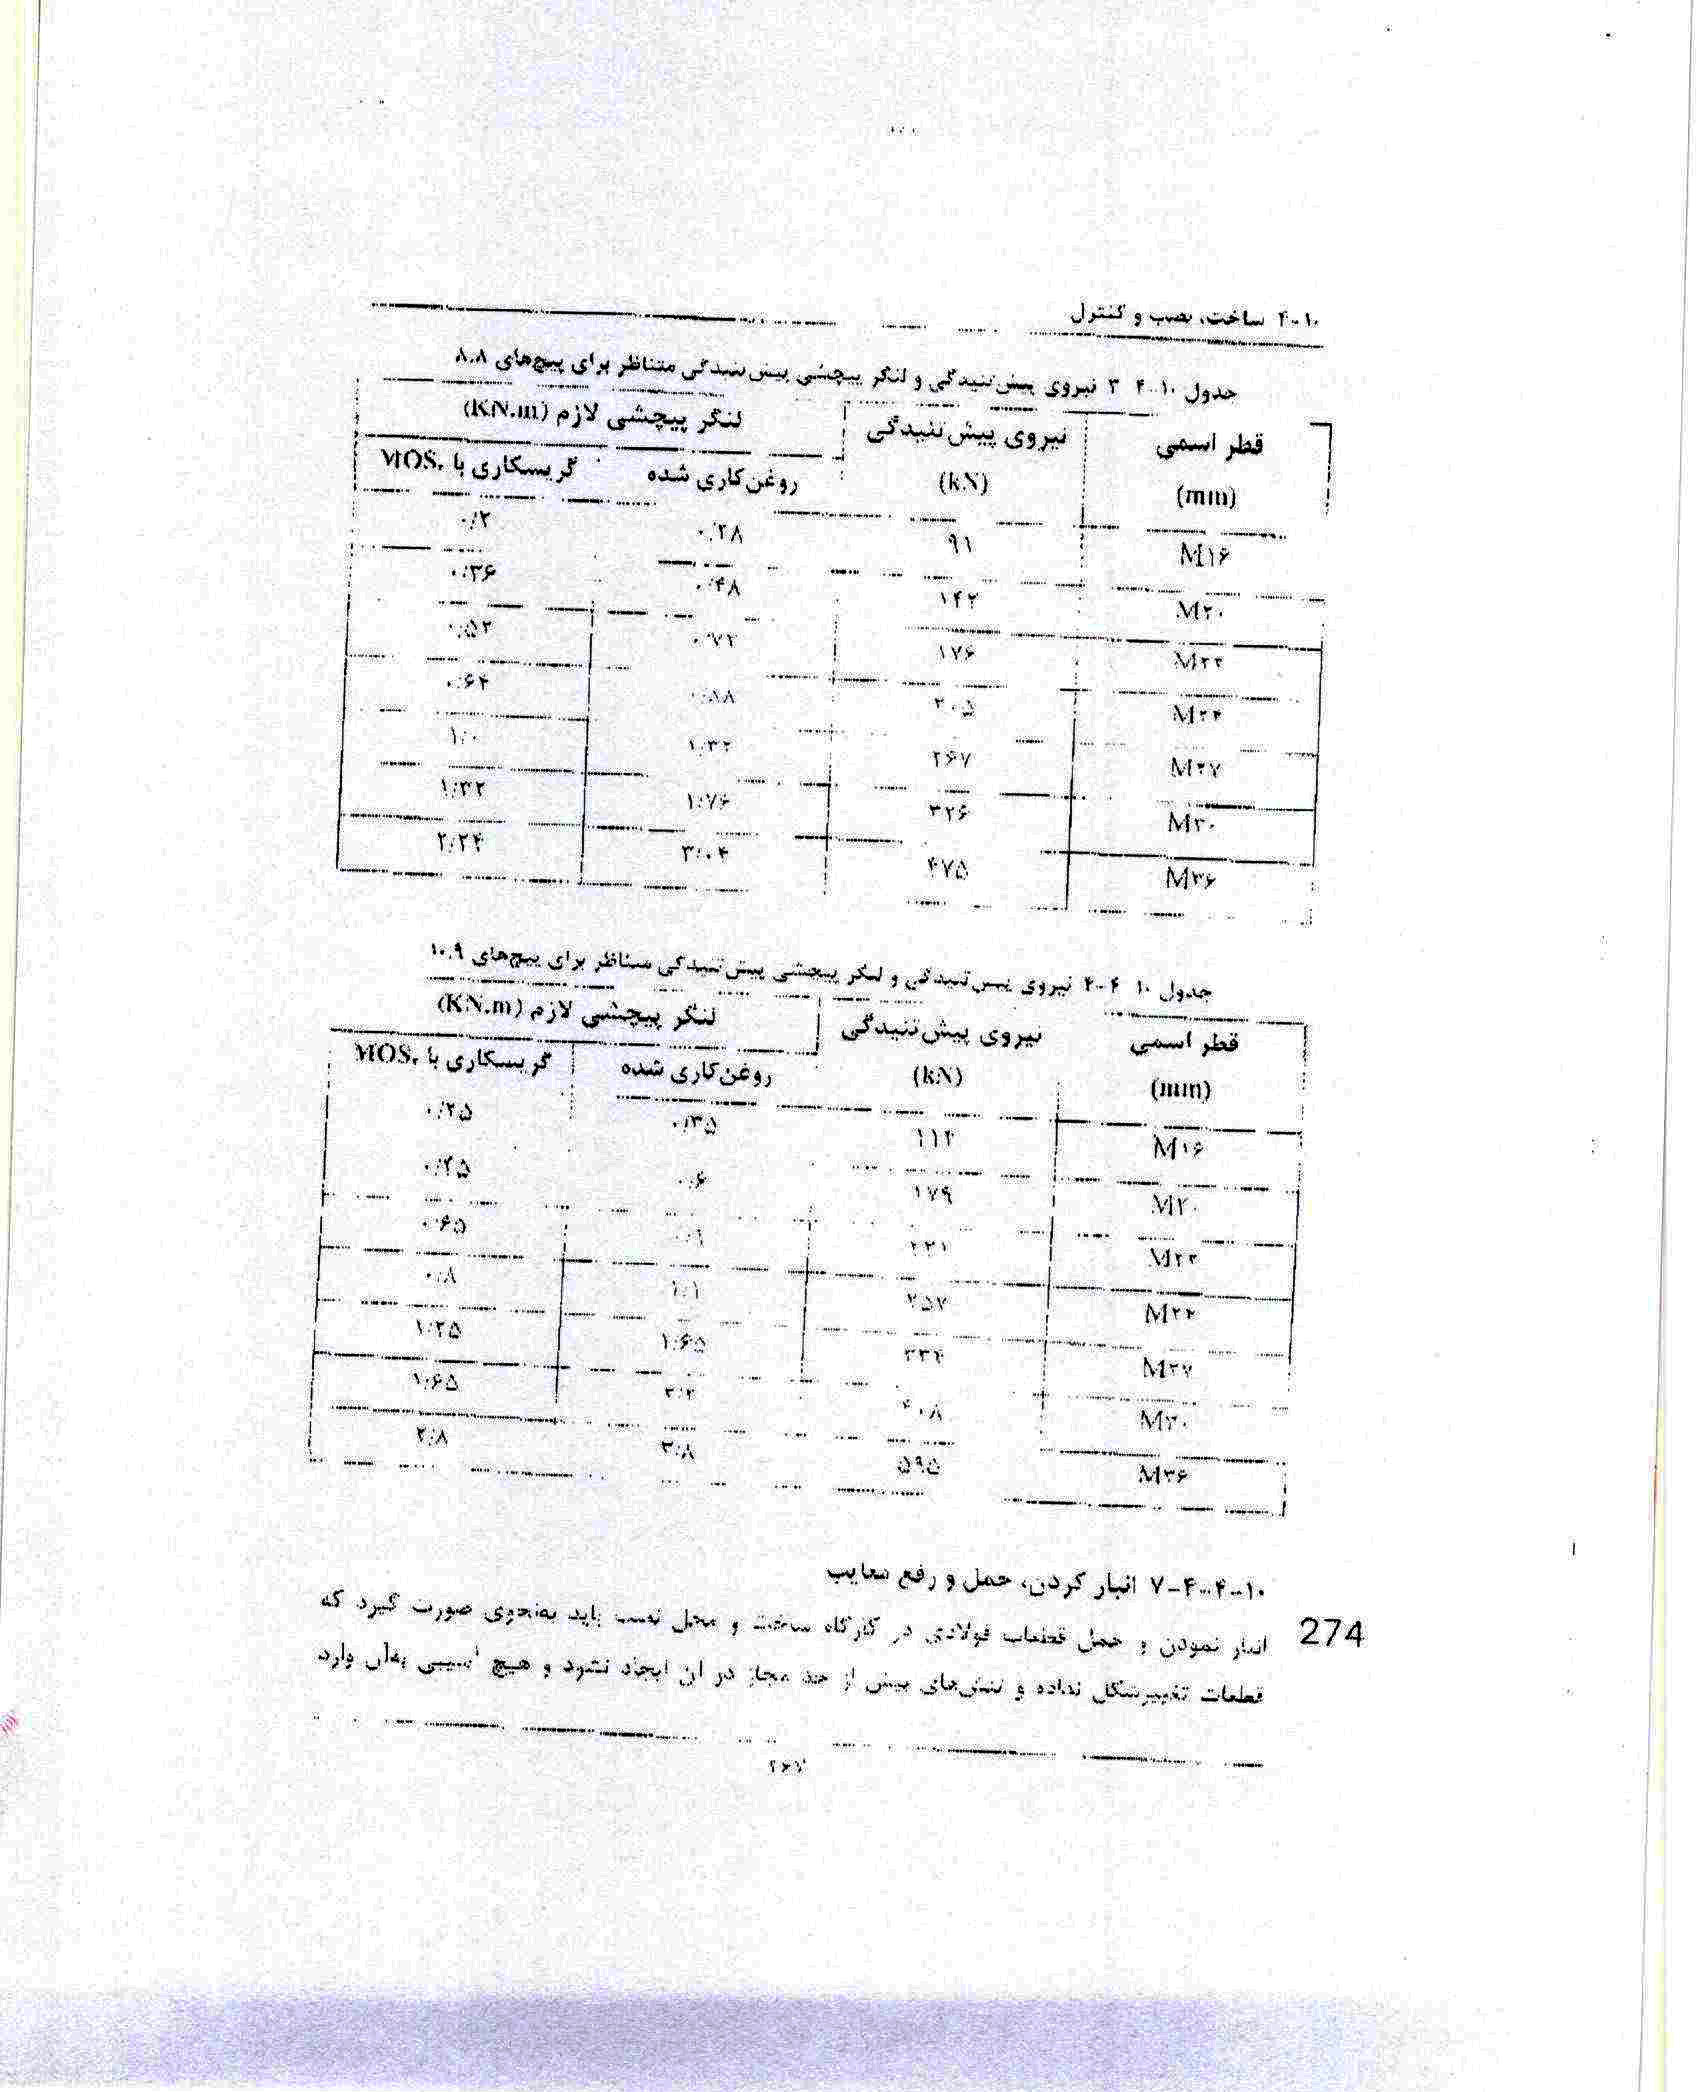 ۱۰-۴ ساخت، نصب و کنترل
جدول ۱۰-۴-۳ نیروی پیش‌تنیدگی و لنگر پیچشی پیش‌تنیدگی متناظر برای پیچ‌های ۸.۸
قطر اسمی (mm) نیروی پیش‌تنیدگی (kN) لنگر پیچشی لازم (KN.m)
روغن‌کاری شده گریسکاری با MOS۲
M۱۶ ۹۱ ۰/۲۸ ۰/۲
M۲۰ ۱۴۲ ۰/۴۸ ۰/۳۶
M۲۲ ۱۷۶ ۰/۷۲ ۰/۵۲
M۲۴ ۲۰۵ ۰/۸۸ ۰/۶۴
M۲۷ ۲۶۷ ۱/۳۲ ۱/۰
M۳۰ ۳۲۶ ۱/۷۶ ۱/۳۲
M۳۶ ۴۷۵ ۳/۰۴ ۲/۲۴
جدول ۱۰-۴-۴ نیروی پیش‌تنیدگی و لنگر پیچشی پیش‌تنیدگی متناظر برای پیچ‌های ۱۰.۹
قطر اسمی (mm) نیروی پیش‌تنیدگی (kN) لنگر پیچشی لازم (KN.m)
روغن‌کاری شده گریسکاری با MOS۲
M۱۶ ۱۱۴ ۰/۳۵ ۰/۲۵
M۲۰ ۱۷۹ ۰/۶ ۰/۴۵
M۲۲ ۲۲۱ ۰/۹ ۰/۶۵
M۲۴ ۲۵۷ ۱/۱ ۰/۸
M۲۷ ۳۳۴ ۱/۶۵ ۱/۲۵
M۳۰ ۴۰۸ ۲/۲ ۱/۶۵
M۳۶ ۵۹۵ ۳/۸ ۲/۸
۱۰-۴-۴-۷ انبار کردن، حمل و رفع معایب
انبار نمودن و حمل قطعات فولادی در کارگاه ساخت و محل نصب باید به‌نحوی صورت گیرد که
274
قطعات تغییرشکل نداده و تنش‌های بیش از حد مجاز در آن ایجاد نشود و هیچ آسیبی به‌آن وارد